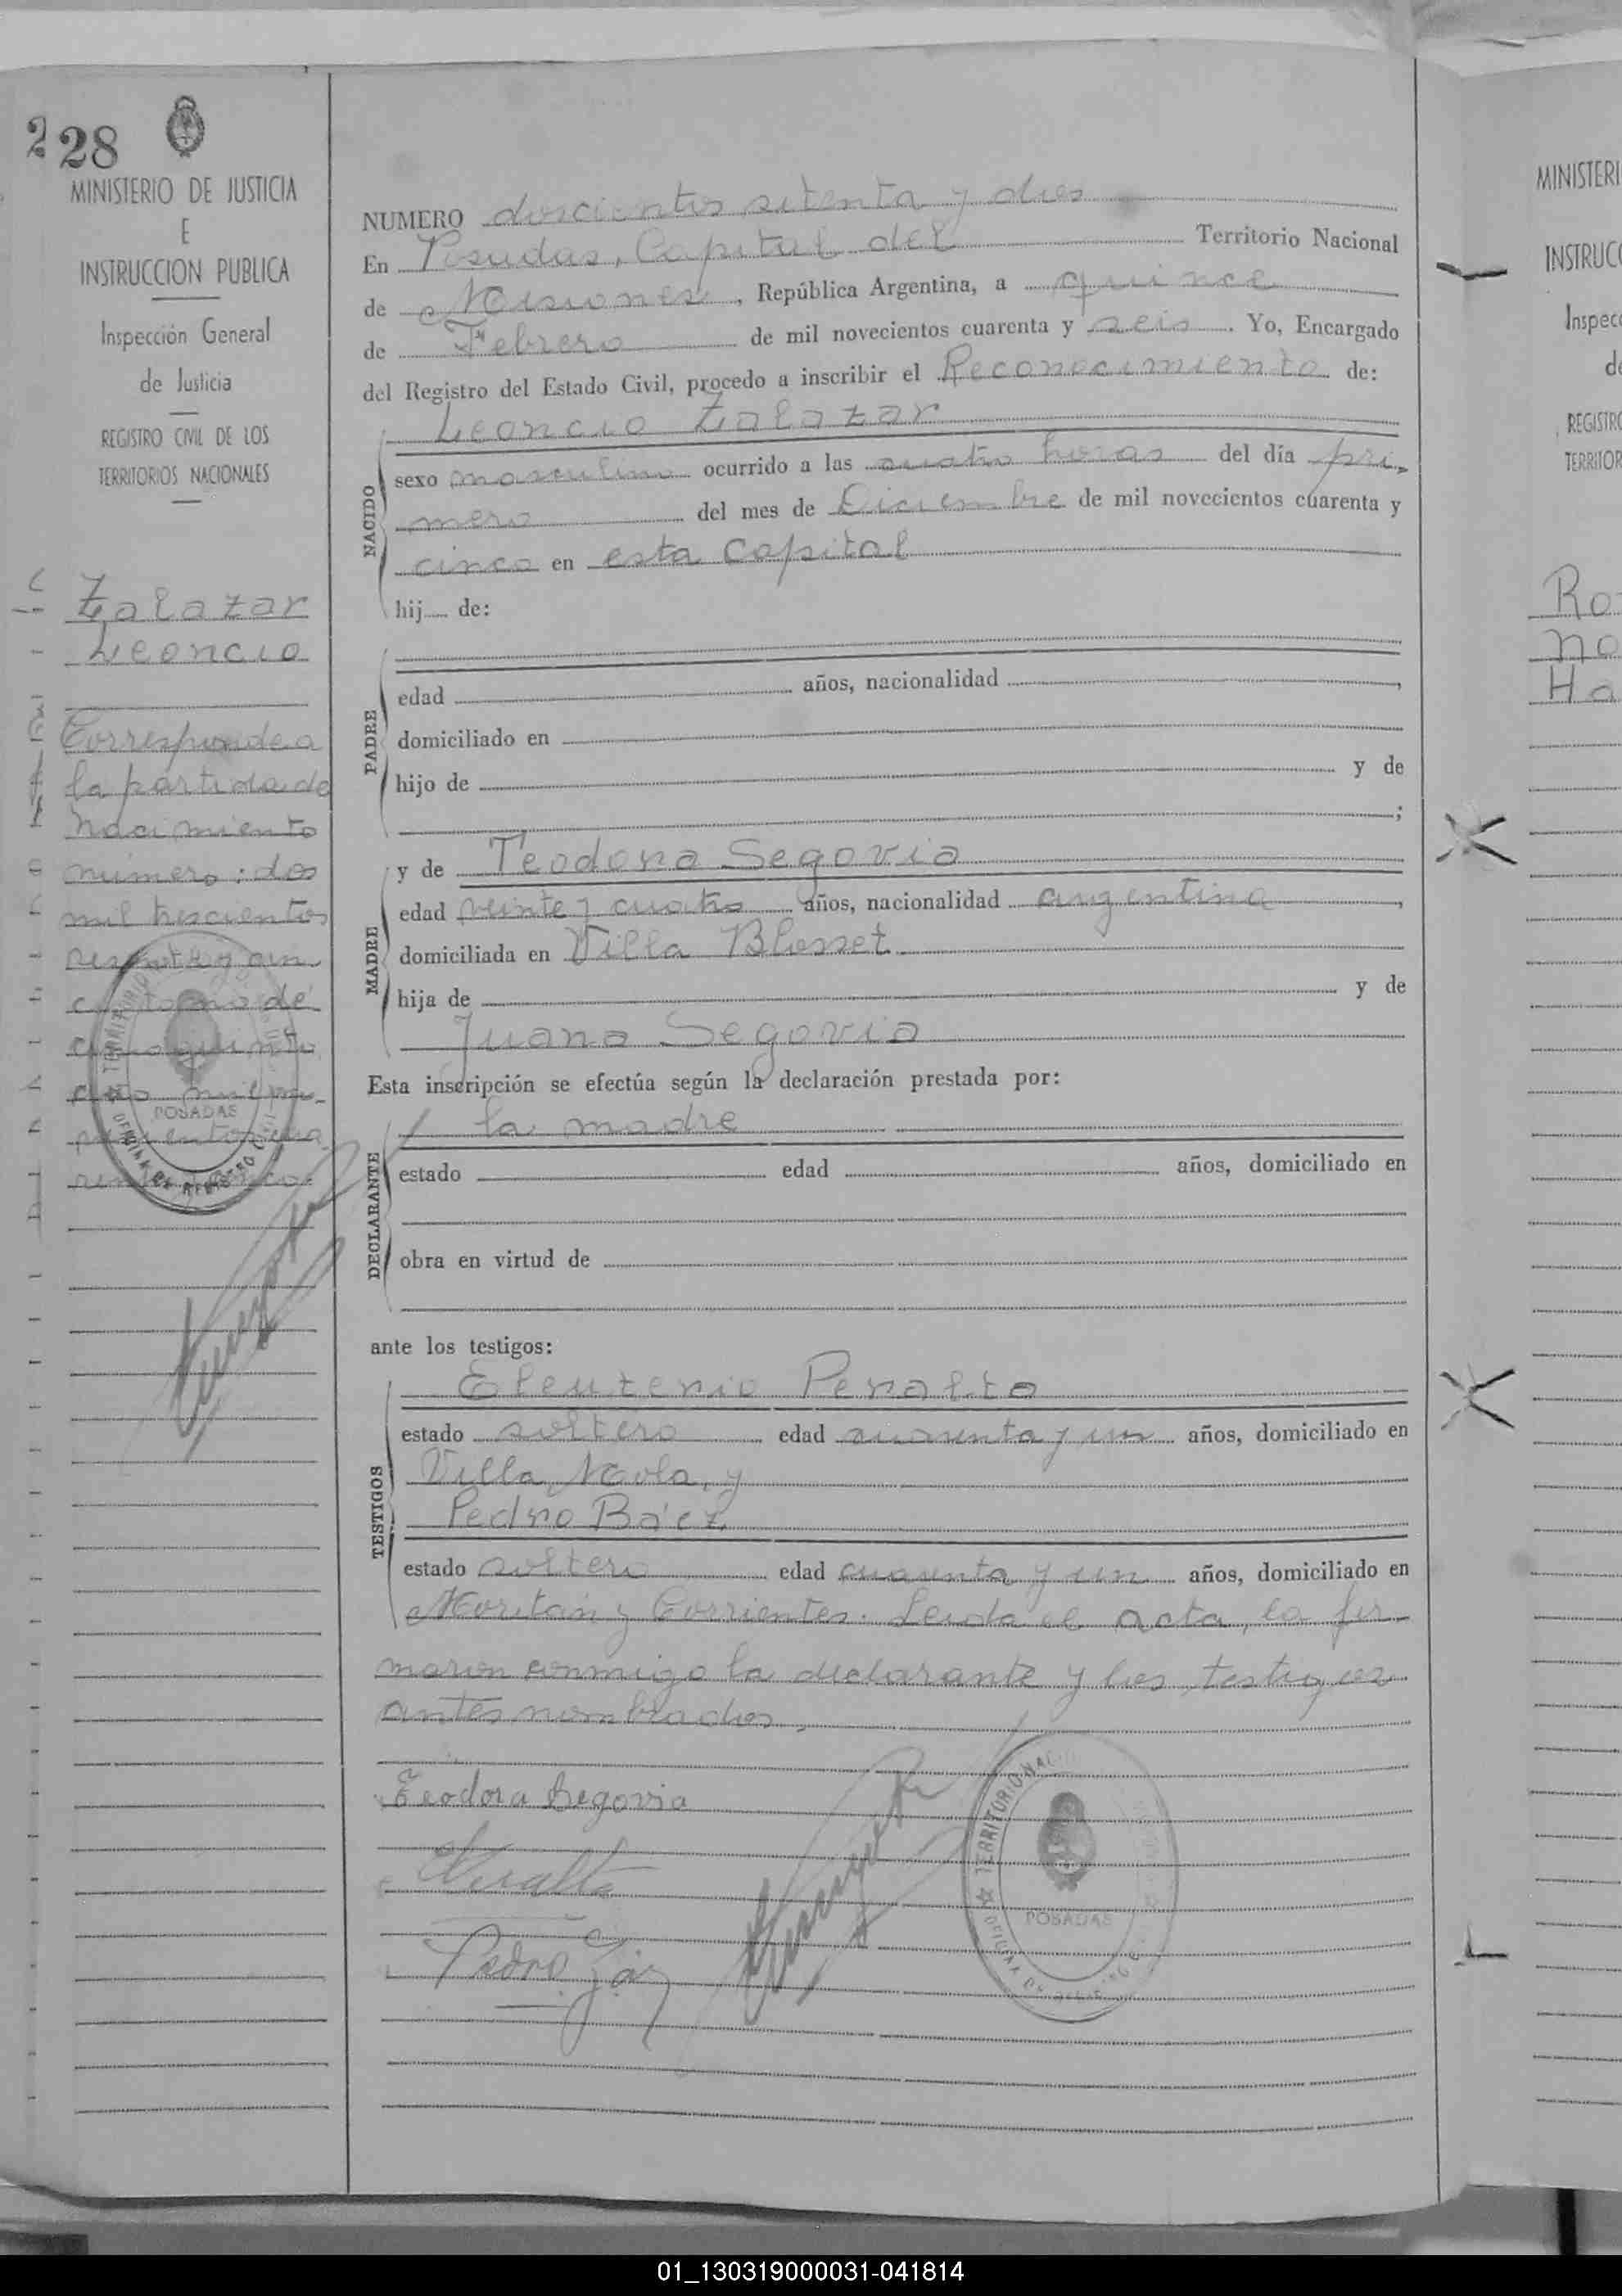 228
MINISTERIO DE JUSTICIA
E
INSTRUCCION PUBLICA
Inspección General
de Justicia
REGISTRO CIVIL DE LOS
TERRITORIOS NACIONALES
Zalazar
Leoncio
Corresponde a
la partida de
nacimiento
número: dos
mil trescientos
POSADAS
NUMERO doscientos setenta y dos
En Posadas, Capital del Territorio Nacional
de Misiones, República Argentina, a quince
de Febrero de mil novecientos cuarenta y seis. Yo, Encargado
del Registro del Estado Civil, procedo a inscribir el Reconocimiento de:
NACIDO
Leoncio Zalazar
sexo masculino ocurrido a las cuatro horas del día pri-
mero del mes de Diciembre de mil novecientos cuarenta y
cinco en esta Capital
hij de:
PADRE
edad años, nacionalidad ,
domiciliado en
hijo de y de
;
MADRE
y de Teodora Segovia
edad veinte y cuatro años, nacionalidad argentina,
domiciliada en Villa Blosset
hija de y de
Juana Segovia
Esta inscripción se efectúa según la declaración prestada por:
DECLARANTE
la madre
estado edad años, domiciliado en
obra en virtud de
ante los testigos:
TESTIGOS
Eleuterio Peralta
estado soltero edad cuarenta y un años, domiciliado en
Villa Mola, y
Pedro Báez
estado soltero edad cuarenta y un años, domiciliado en
y Corrientes. Leída el acta, la fir-
maron conmigo la declarante y los testigos
antes nombrados.
Teodora Segovia
Peralta
Pedro Báez
TERRITORIO NAC
POSADAS
MINISTERI
INSTRUCC
Inspecc
de
REGISTRO
TERRITOR
Ro
no
Ha
01_130319000031-041814